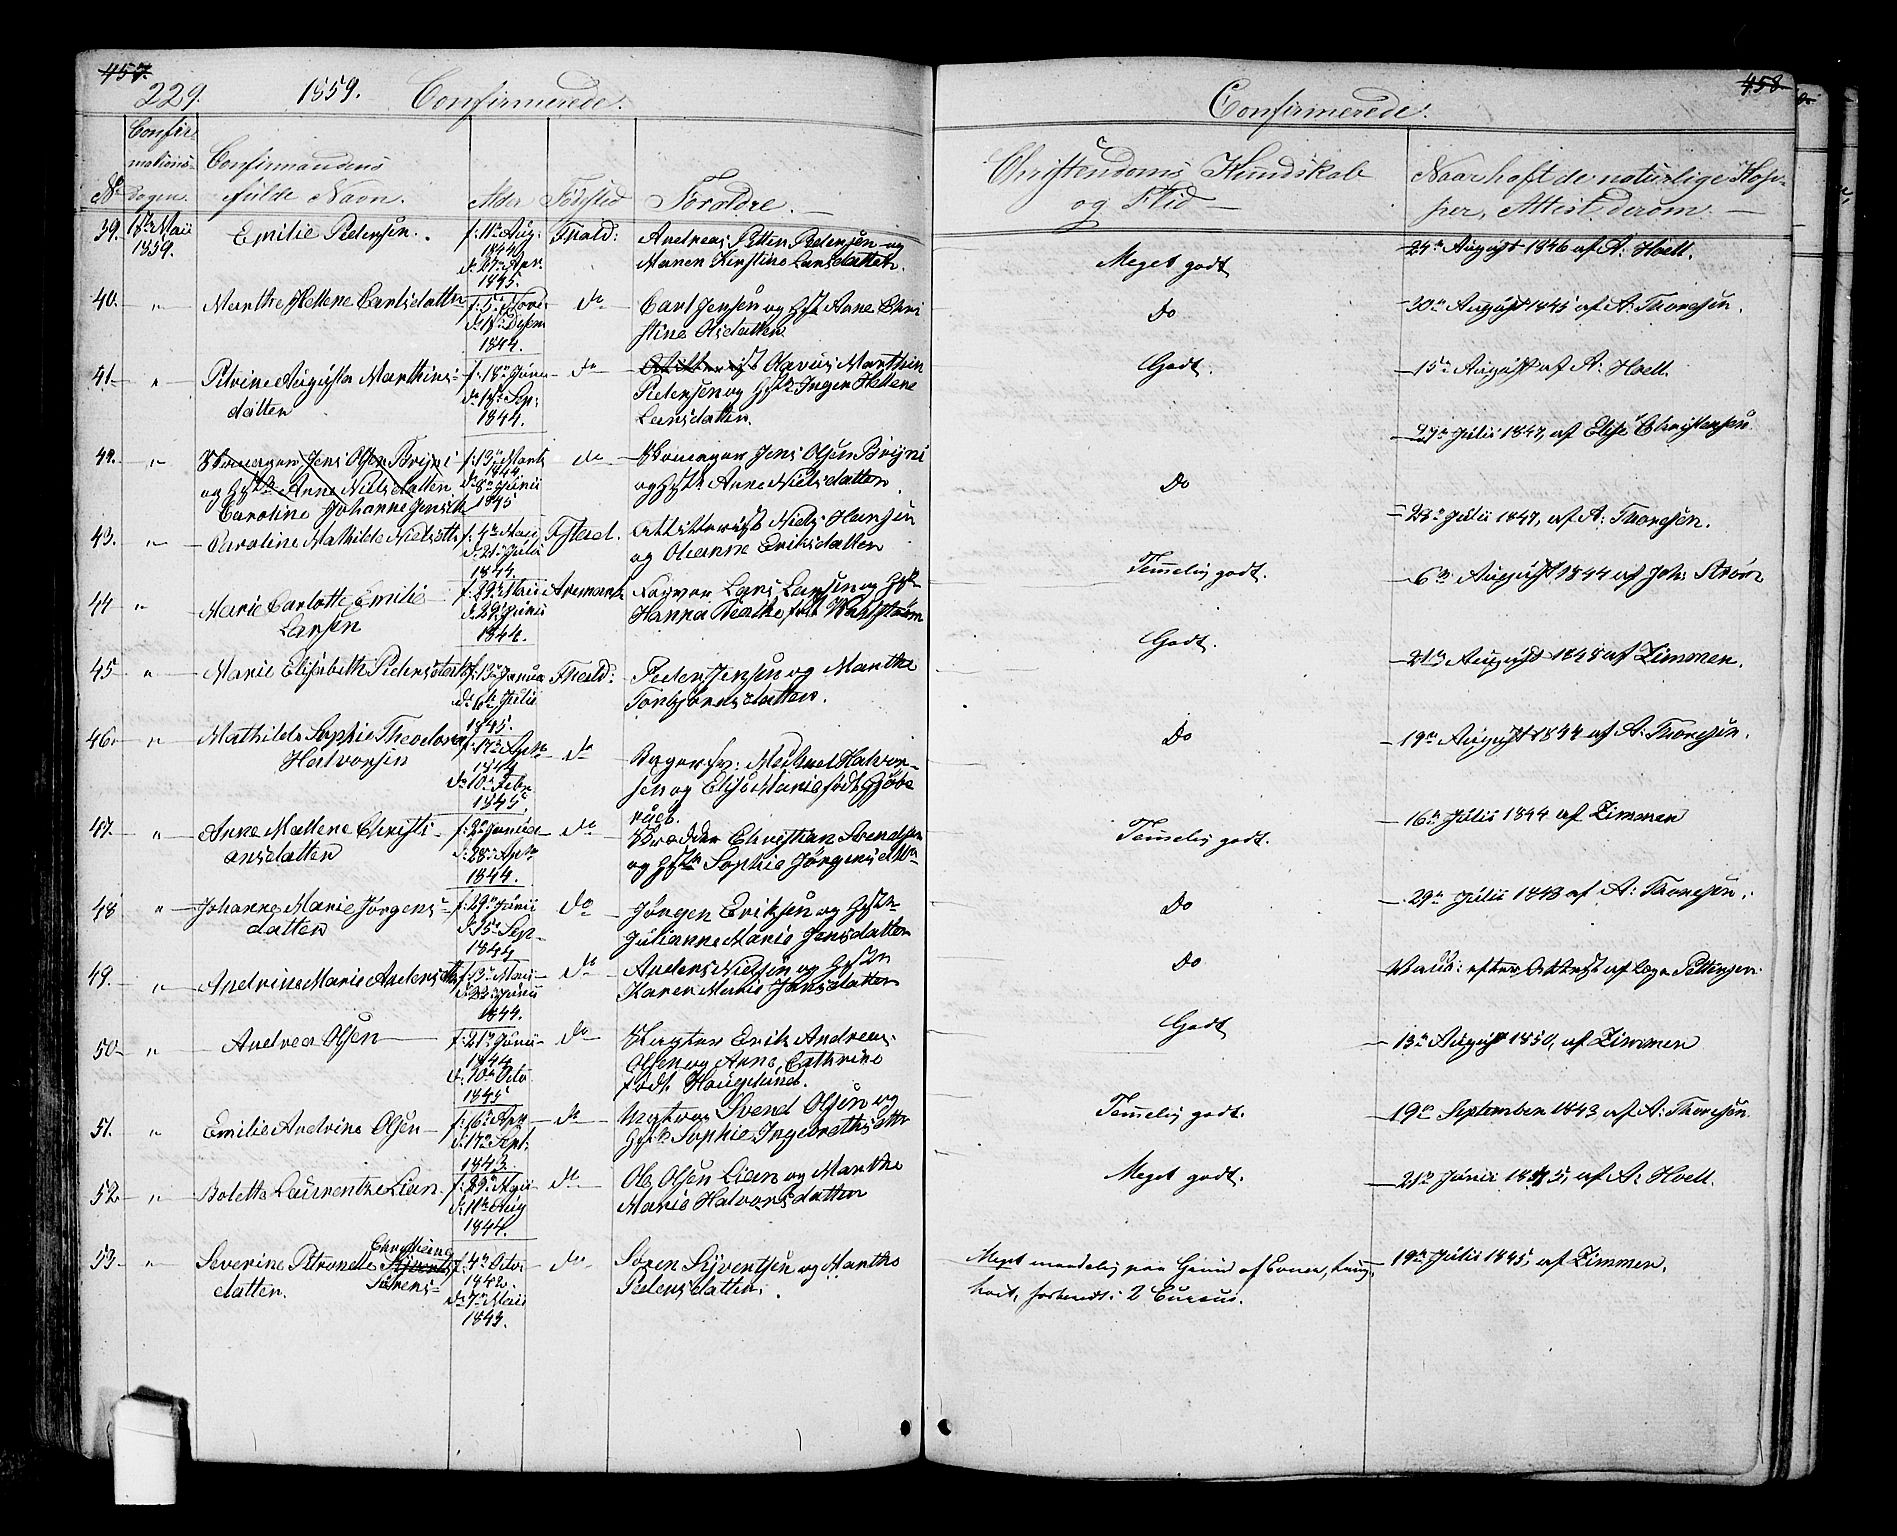 457.
229. 1859. Confirmerede.
Confir
mations-
Dagen.
No
Confirmandens
fulde Navn.
Alder
Fødsted
Forældre.
39. 18de Maii 1859. Emilie Pedersen. f. 11te Aug: 1844 d. 27de Apr. 1845. Frald: Andreas Petter Pedersen og
Maren Kirstine Larsdatter.
40. " Marthe Hellene Carlsdatter f. 5te Novr d. 18de Desem 1844. do Carl Jensen og Hst Anne Chri
stine Olsdatter
41. " Petrine Augusta Marthins-
datter f. 18de Juni d. 18de Sep: 1844. do Olavus Marthin
Pedersen og Hst Inger Hellene
Larsdatter.
42. " Jens Olsen Bryni
og Hst Anne Nielsdatter
Caroline Johanne Jensdr f. 13de Marts 1844 d. 8de Junii 1845 do Jens Olsen Bryni
og Hst Anne Nielsdatter
43. " Caroline Mathilde Nielsdtr f. 4de Maii d. 21de Julii 1844. Niels Hansen
og Olianne Eriksdatter
44 " Marie Carlotte Emilie
Larsen f. 29de Maii d. 29de Junii 1844. Aremark Lars Larsen og Hst
Hanna født Wahlstrøm
45 " Marie Elisabeth Pedersdatter f. 13de Janua d. 6te Julii 1845. Frald: Peder Jensen og Marthe
Torbjørnsdatter.
46. " Mathilde Sophie Theodora
Halvorsen f. 17de Apr 1844 d. 10de Febr 1845. do Bagersv: Michael Halvor-
sen og Elise Marie født Gjøbe
rud.
47. " Anne Mallene Christi-
ansdatter f. 2de Janua d. 28de Apr 1844. do Skrædder Christian Svendsen
og Hst Sophie Jørgensdtr
48 " Johanne Marie Jørgens-
datter f. 29de Junii d. 15de Sep 1844 do Jørgen Eriksen og Hst
Julianne Marie Jensdatter
49. " Andrine Marie Andersdtr f. 13de Mai d. 22de Junii 1844. do Anders Nielsen og Hst
Karen Marie Jensdatter
50 " Andrea Olsen f. 21de Junii 1844 d. 10de Octo 1845 do Slagter Erik Andreas
Olsen og Anne Cathrine
født Hauglund.
51. " Emilie Andrine Olsen f. 16de Apr d. 17de Sept. 1843. do Svend Olsen og
Hst Sophie Ingebrethsdtr
52. " Bolette Laurentke Lien. f. 29de Mai d. 11te Aug 1844. do Ole Olsen Lien og Marthe
Marie Halvorsdatter
53. " Severine Petronelle Christine
Sørens-
datter. f. 4de Octo 1842. d. 7de Maii 1843. do Søren Syvertsen og Marthe
Pedersdatter.
458
Confirmerede.
Christendoms Kundskab
og Flid
Naar haft de naturlige Kop-
per, Attest derom.
Meget godt 24de August 1846 af A: Hoell.
Do 20de August 1845 af A: Thoresen.
Godt. 15de August af A: Hoell.
Do 27de Julii 1847, af Elise Christensen.
23de Julii 1847, af A: Thoresen.
Temmelig godt. 6te August 1844 af Joh: Strøm
Godt. 21de August 1845 af Zimmer.
Do 19de August 1844 af A: Thoresen.
Temmelig godt. 16de Julii 1844 af Zimmer
Do 29de Julii 1843 af A: Thoresen.
Do Vacc: efter Attest af Læge Pettersen.
Godt 13de August 1850, af Zimmer
Temmelig godt. 19de September 1843, af A: Thoresen.
Meget godt. 21de Junii 1845, af A: Hoell.
Meget maadelig paa Grund af
2 Cursus. 19de Julii 1845, af Zimmer.